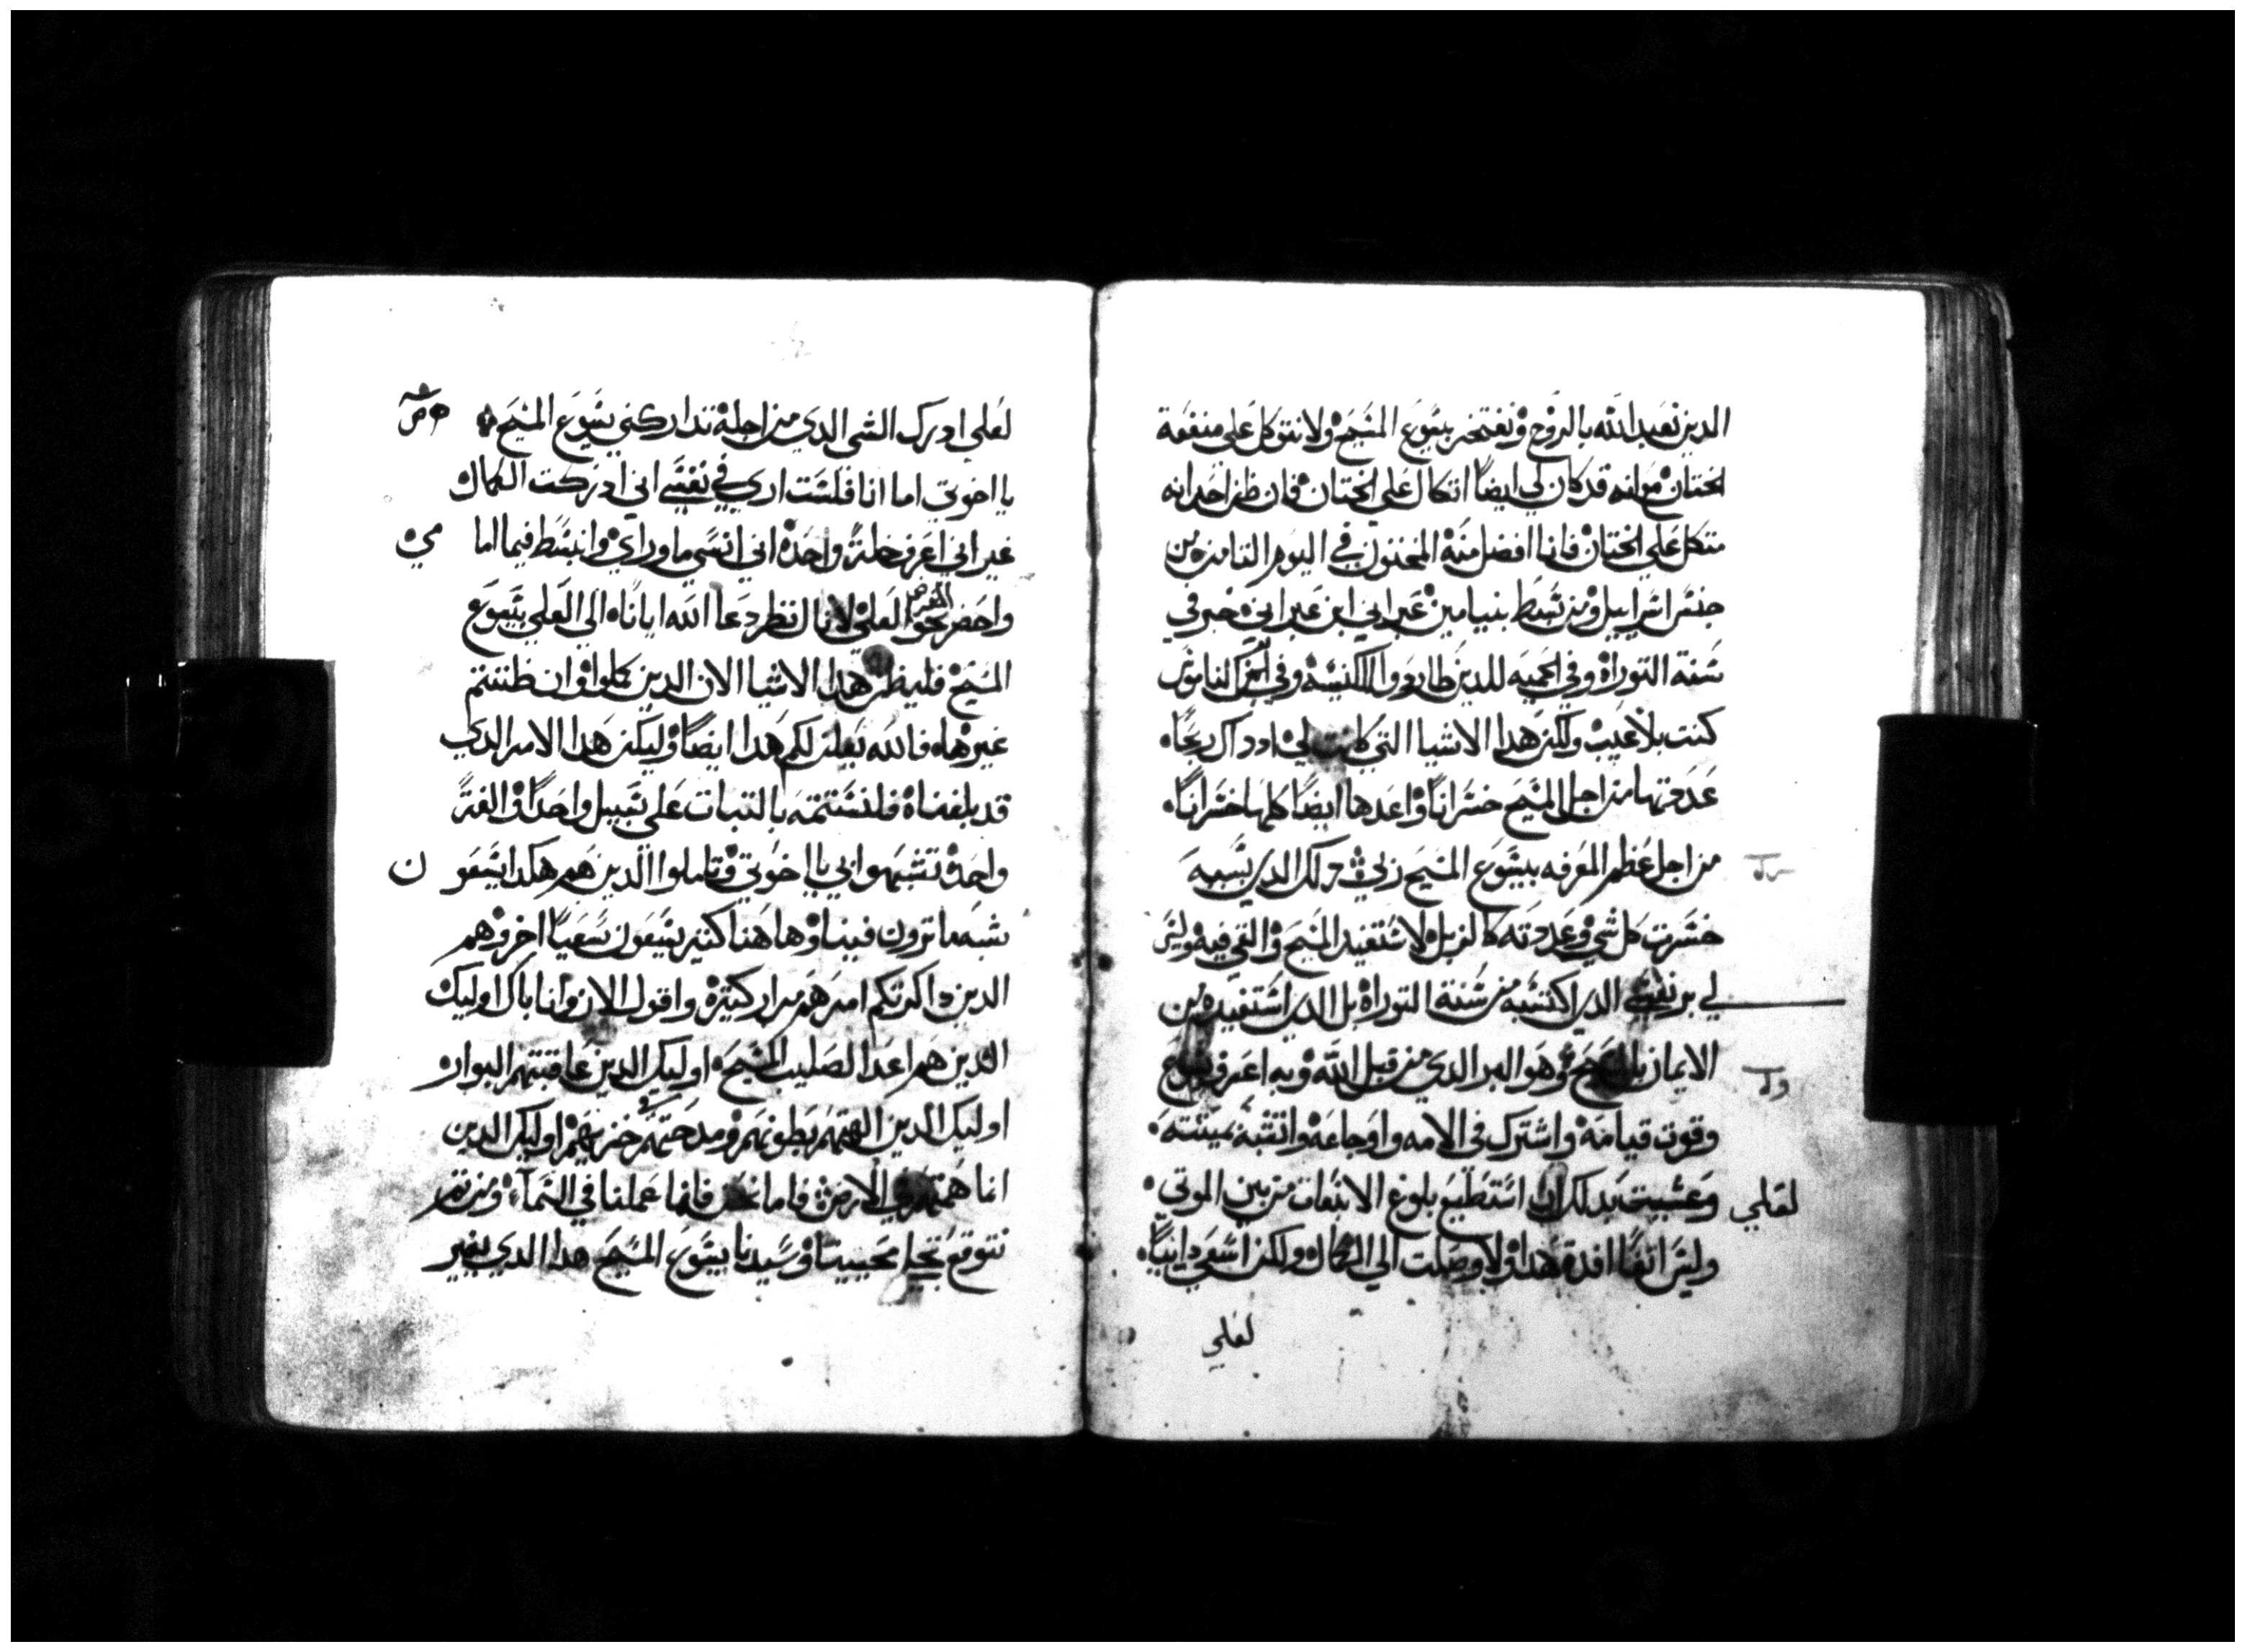 الدين نعبد الله بالروح ونفتخر بيسوع المسيح ولا نتوكل على منفعة
الختان مع انه قد كان لي ايضاً اتكال على الختان فان ظن احد انه
متكل على الختان فانا افضل منه المختون في اليوم التامن من
جنس اسراييل ومن سبط بنيامين عبراني ابن عبراني حبر في
سنة التوراة وفي الحميه للدين طارد الكنيسه وفي الناموس
كنت بلا عيب ولكن هدا الاشيا التي كانت لي اد داك ربحاً
عددتها من اجل المسيح خسراناً واعدها ايضاً كلها خسراناً
من اجل عظم المعرفه بيسوع المسيح ربي دلك الدي بسببه
خسرت كل شي وعددته كالزبل لاستفيد المسيح والقي فيه وليس
لي بر نفسي الدي اكتسبه من سنة التوراة بل الدي استفيده من
الايمان بالمسيح وهو البر الدي من قبل الله وبه اعرف يسوع
وقوت قيامة واشترك في الامه واوجاعه واتشبه بميتته
وعسيت بدلك ان استطيع بلوغ الانبعات من بين الموتي
لعلي
وليس اتفاً افدة هدا ولا وصلت الي الكمال ولكن اسعي دايباً
لعلي
لعلي ادرك الشي الدي من اجلة تداركني يسوع المسيح
يا اخوتي اما انا فلست اري في نفسي اني ادركت الكمال
غير اني اعرف خلة واحدة اني انسي ما وراي وانبسط فيما اما
مي
واحضر نحو الغرض العلي لانال نظر دعا الله ايانا الي العلي بيسوع
المسيح فليظن هدا الاشيا الان الدين كملوا وان ظننتم
غيرها فالله يعلن لكم هدا ايضاً وليكن هدا الامر الدي
قد بلغناه فلنستتمه بالتبات على سبيل واحداً والفة
واحدة تشبهوا بي يا اخوتي وتاملوا الدين هم هكدا يسعو ن
شبه ما ترون فينا وها هنا كتير يسعون سعياً اخر وهم
الدين داكرتكم امرهم مرار كتيرة واقول الان وانا باك اوليك
الدين هم اعدا لصليب المسيح اوليك الدين عاقبتهم البوار
اوليك الدين الهتهم بطونهم ومدحتهم في خزيهم اوليك الدين
انما همتهم في الارض فاما نحن فانما عملنا في السمآء ومن تم
نتوقع تجلي محيينا وسيدنا يسوع المسيح هدا الدي يغير